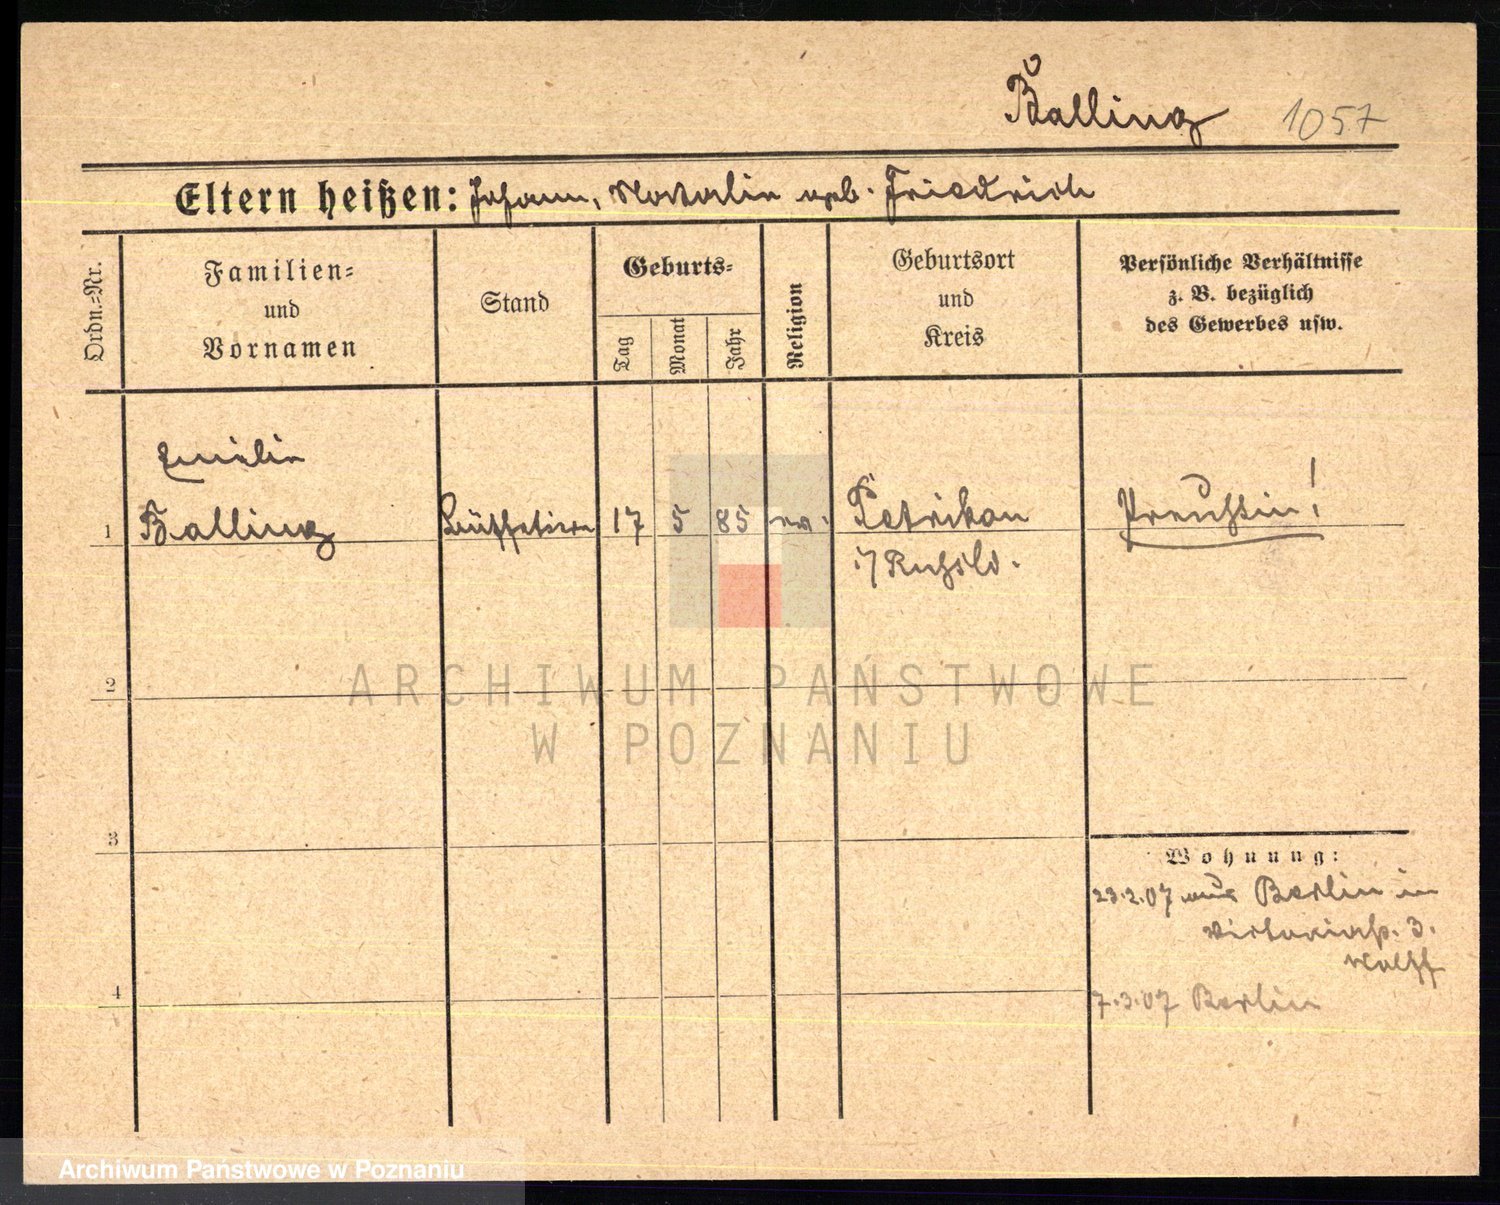 Balling 1057
Eltern heißen: Johann, Natalie geb. Friedrich
Ordn.=Nr.
Familien=
und
Vornamen
Stand
Geburts=
Tag
Monat
Jahr
Religion
Geburtsort
und
Kreis
Persönliche Verhältnisse
z. B. bezüglich
des Gewerbes usw.
Emilie
1 Balling Büffetiere 17 5 85 ev. Petrikau Preußin!
i/Rußld.
2
ARCHIWUM PAŃSTWOWE
W POZNANIU
3
Wohnung:
23.2.07 aus Berlin in
Viktoriastr. 3.
Wolff
4
7.3.07 Berlin
Archiwum Państwowe w Poznaniu